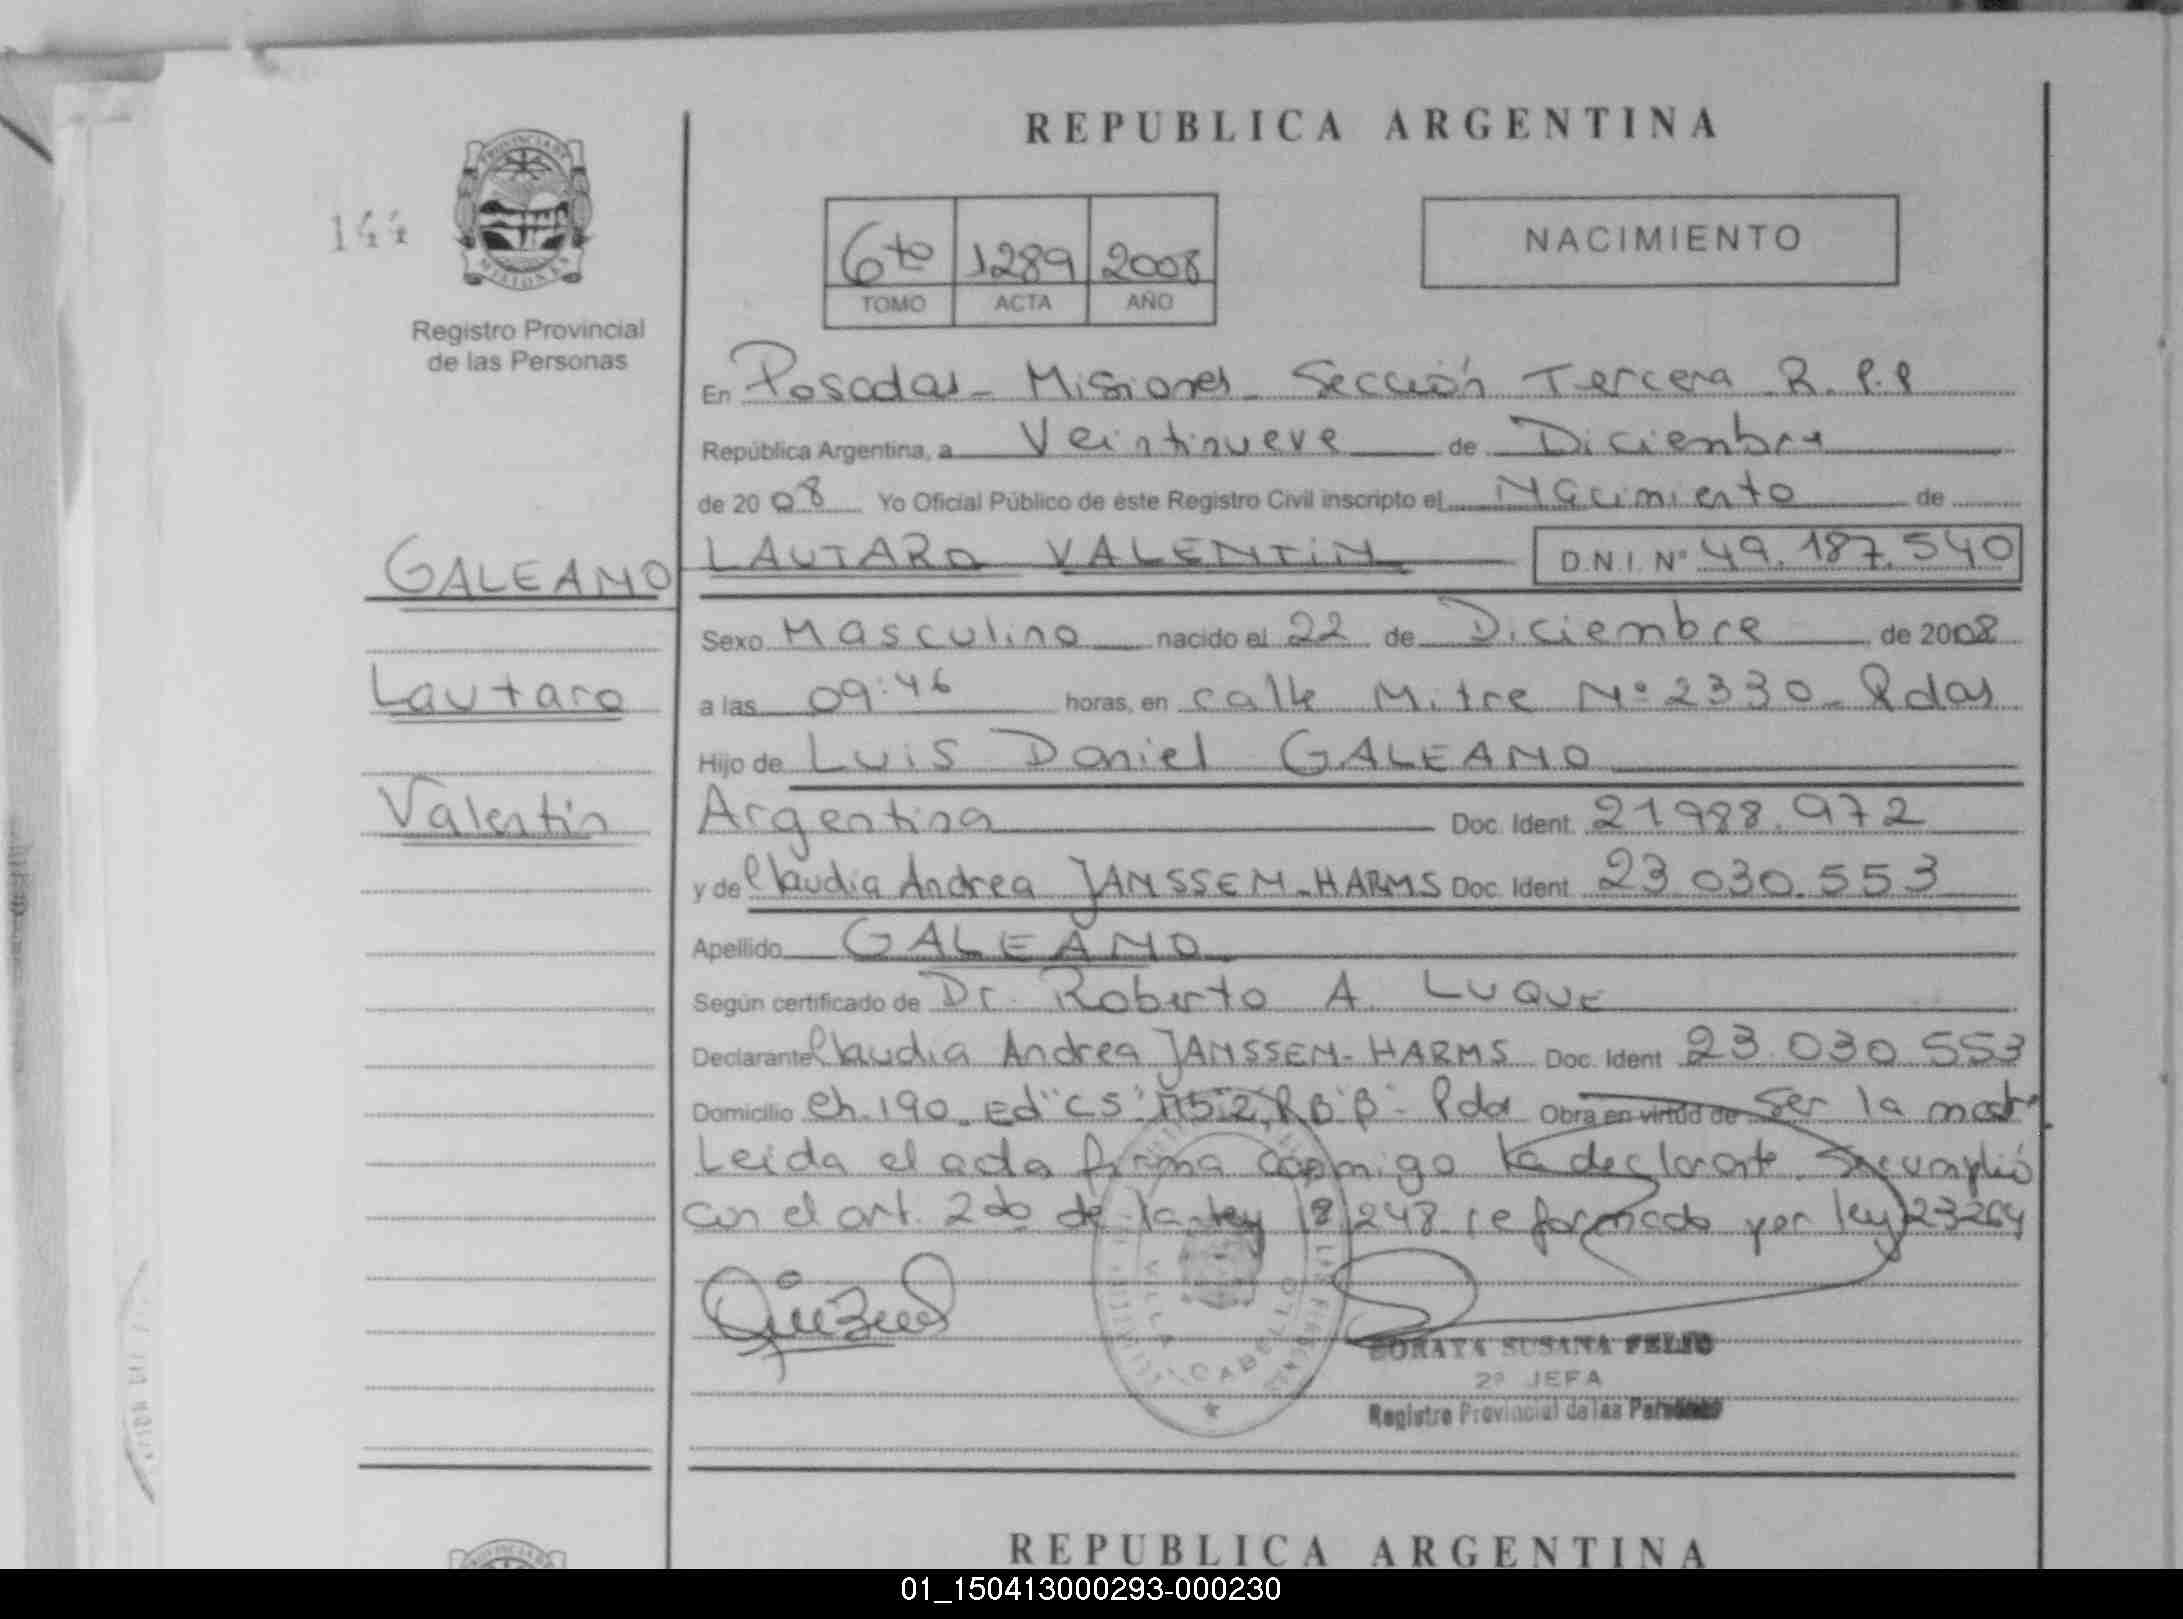 REPUBLICA ARGENTINA
144
PROVINCIA DE
MISIONES
Registro Provincial
de las Personas
6to 1289 2008
TOMO ACTA AÑO
NACIMIENTO
En Posadas - Misiones - Sección Tercera R.P.P
República Argentina, a Veintinueve de Diciembre
de 2008 Yo Oficial Público de éste Registro Civil inscripto el Nacimiento de
GALEANO LAUTARO VALENTIN D.N.I. Nº 49.187.540
Sexo Masculino nacido el 22 de Diciembre de 2008
Lautaro
a las 09:46 horas, en calle Mitre Nº 2330 - Pdas
Hijo de Luis Daniel GALEANO
Valentin
Argentina Doc. Ident. 21988.972
y de Claudia Andrea JANSSEN-HARMS Doc. Ident. 23 030.553
Apellido GALEANO
Según certificado de Dr. Roberto A. LUQUE
Declarante Claudia Andrea JANSSEN-HARMS Doc. Ident 23 030 553
Domicilio Ch. 190 Ed "CS" Pda Obra en virtud de Ser la
Leida el acta firma conmigo la declarante. Se cumplió
con el art. 2do de la ley 18 248 reformado por ley 23264
VILLA CABELLO
SORAYA SUSANA
2º JEFA
Registro Provincial de las Personas
REPUBLICA ARGENTINA
01_150413000293-000230